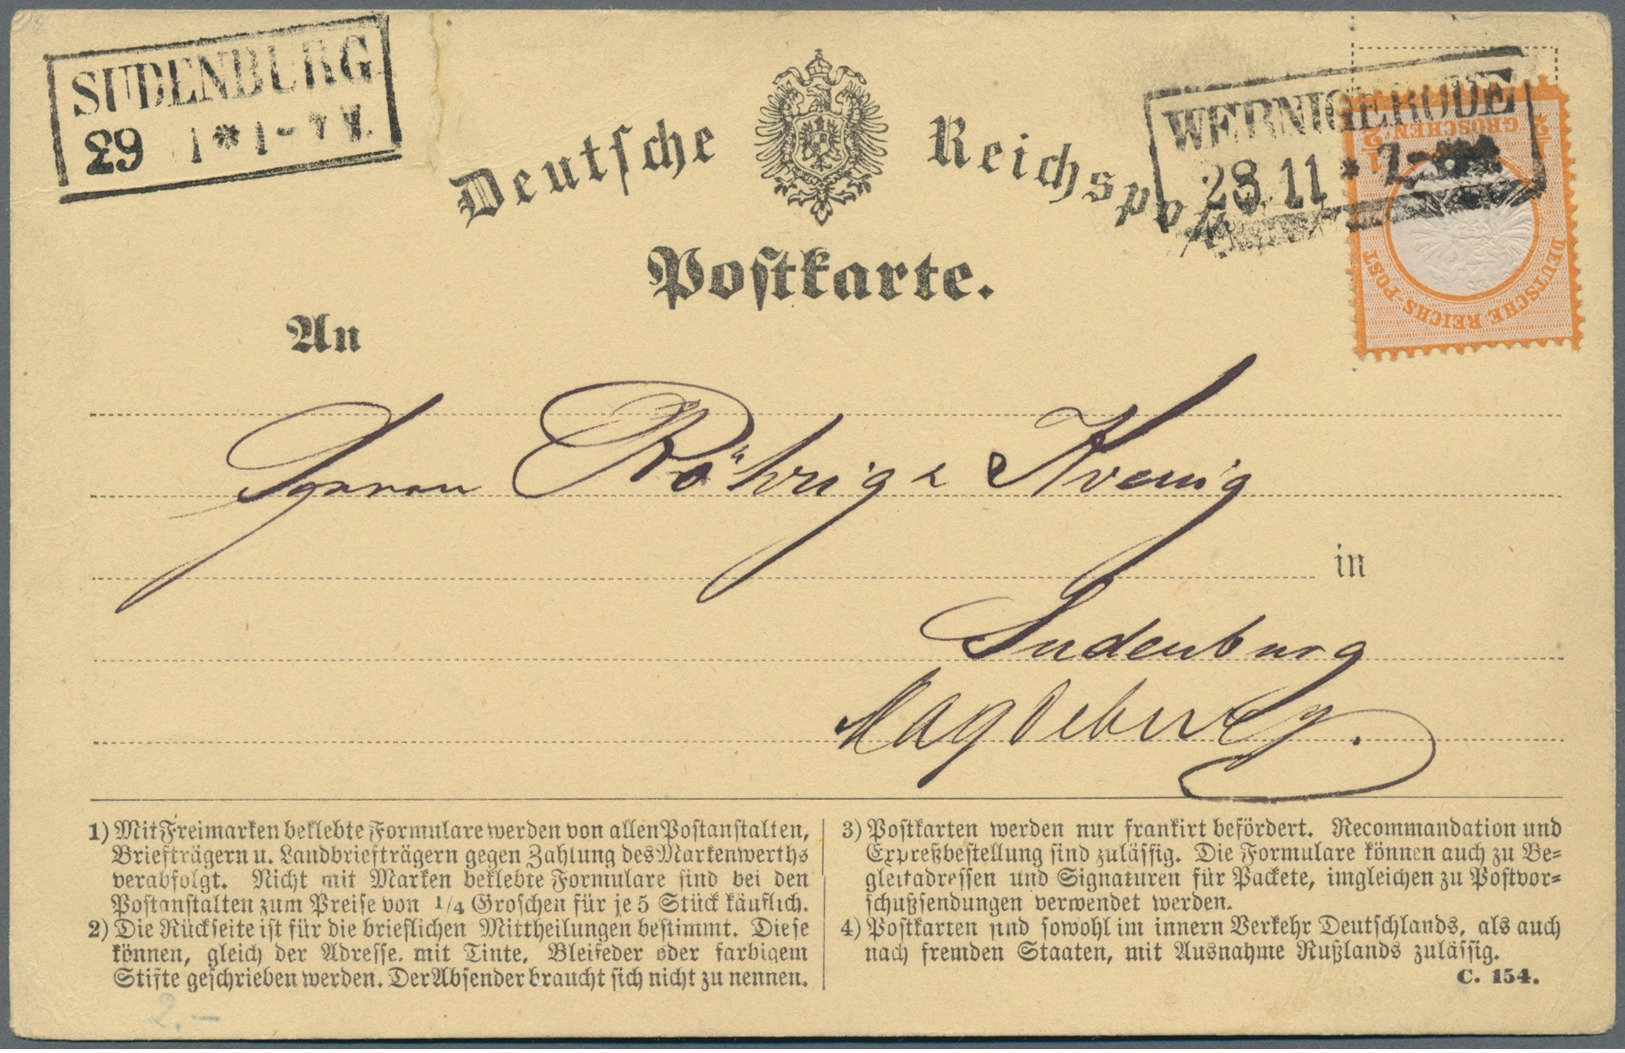 SUDENBURG
29
WERNIGERODE
28.11 * 2-
1/2 GROSCHEN 1/2
DEUTSCHE REICHS-POST
Deutsche Reichspost
Postkarte.
An
Herren Röhrig & Koenig
in
Sudenburg
Magdeburg.
1) Mit Freimarken beklebte Formulare werden von allen Postanstalten,
Briefträgern u. Landbriefträgern gegen Zahlung des Markenwerths
verabfolgt. Nicht mit Marken beklebte Formulare sind bei den
Postanstalten zum Preise von 1/4 Groschen für je 5 Stück käuflich.
2) Die Rückseite ist für die brieflichen Mittheilungen bestimmt. Diese
können, gleich der Adresse, mit Tinte, Bleifeder oder farbigem
Stifte geschrieben werden. Der Absender braucht sich nicht zu nennen.
3) Postkarten werden nur frankirt befördert. Recommandation und
Expreßbestellung sind zulässig. Die Formulare können auch zu Be-
gleitadressen und Signaturen für Packete, imgleichen zu Postvor-
schußsendungen verwendet werden.
4) Postkarten sind sowohl im innern Verkehr Deutschlands, als auch
nach fremden Staaten, mit Ausnahme Rußlands zulässig.
C. 154.
2.-